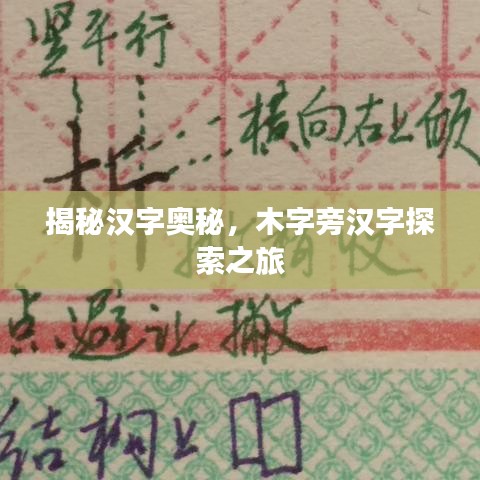 竖平行
横向右上倾
析
揭秘汉字奥秘，木字旁汉字探
索之旅
点避让撇
结构上